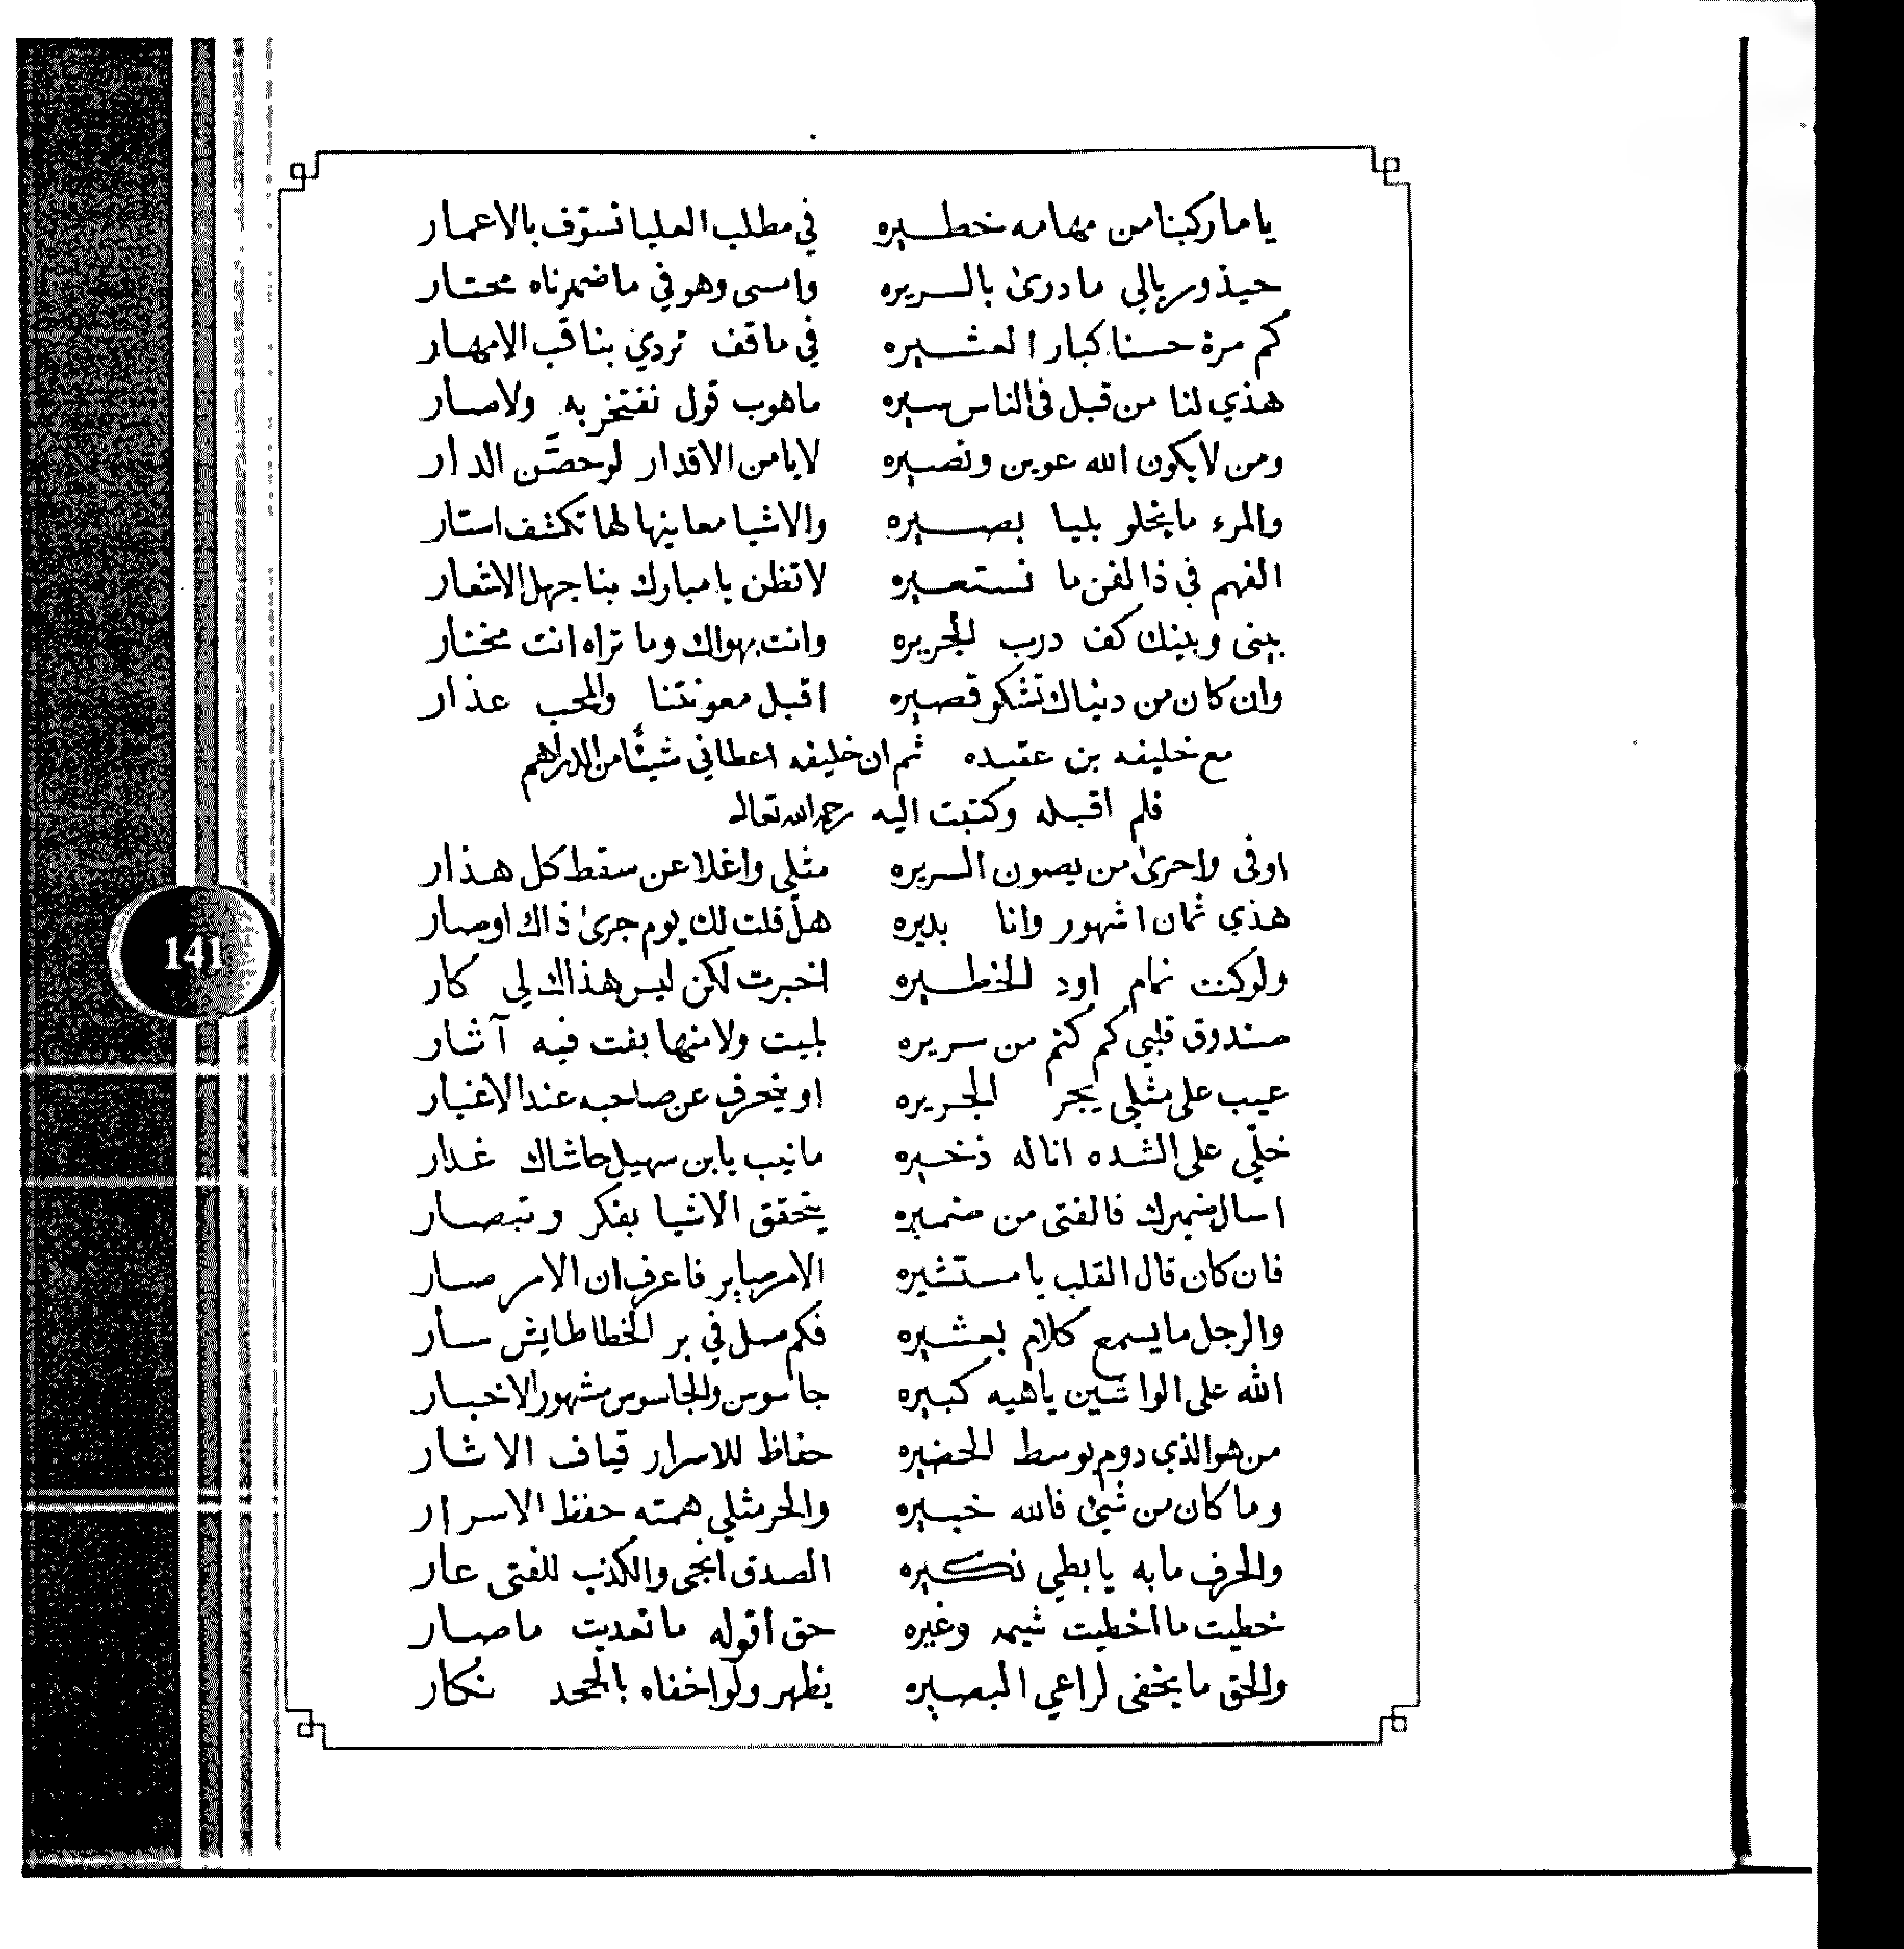 ياما ركبنا من مهامه خطيره في مطلب العليا نسوّف بالاعمار
حيذور بالي مادرى بالسريره وامسى وهو في ماضمرناه محتار
كم مرة حسنا كبار العشيره في ماقف تردي بنا قب الامهار
هذي لنا من قبل في الناس سيره ماهوب قول نفتخر به ولاصار
ومن لايكون الله عوين ونصيره لايامن الاقدار لوحصَّن الدار
والمرء مايخلو بليا بصيره والاشيا معاينها لها تكشف استار
الفهم في ذا لفن ما نستعيره لاتظن يامبارك بنا جهل الاشعار
بيني وبينك كف درب الجريره وانت بهواك وما تراه انت مختار
وان كان من دنياك تشكو قصيره اقبل معونتنا والمحب عذار
مع خليفه بن عقيده ثم ان خليفه اعطاني شيئا من الدراهم
فلم اقبله وكتبت اليه رحمه الله تعالى
اوفى واحرى من يصون السريره مثلي واغلا عن سقط كل هذار
هذي ثمان اشهور وانا بديره هلّ قلت لك يوم جرى ذاك اوصار
ولوكنت نمام اود الخطيره اخبرت لكن ليس هذاك لي كار
صندوق قلبي كم كتم من سريره بليت ولامنها بقت فيه آثار
عيب على مثلي يجر الجريره او ينحرف عن صاحبه عند الاغيار
خلّي على الشده انا له ذخيره مانيب يابن سهيل حاشاك غدار
اسال ضميرك فالفتى من ضميره يتحقق الاشيا بفكر وتبصار
فان كان قال القلب يامستشيره الامر صاير فاعرف ان الامر صار
والرجل مايسمع كلام بعشيره فكم مسل في بر الخطا طايش سار
الله على الواشين ياهيه كبيره جاسوس والجاسوس مشهور الاخبار
من هو الذي دوم بوسط الحضيره حفاظ للاسرار قياف الاثار
وما كان من شيئ فالله خبيره والحر مثلي همته حفظ الاسرار
والحرف مابه يابطي نكيره الصدق انجى والكذب للفتى عار
خطيت ما اخطيت شيمه وغيره حق اقوله ما تعديت ماصار
والحق مايخفى لراعي البصيره يظهر ولو اخفاه بالجحد نكار
141